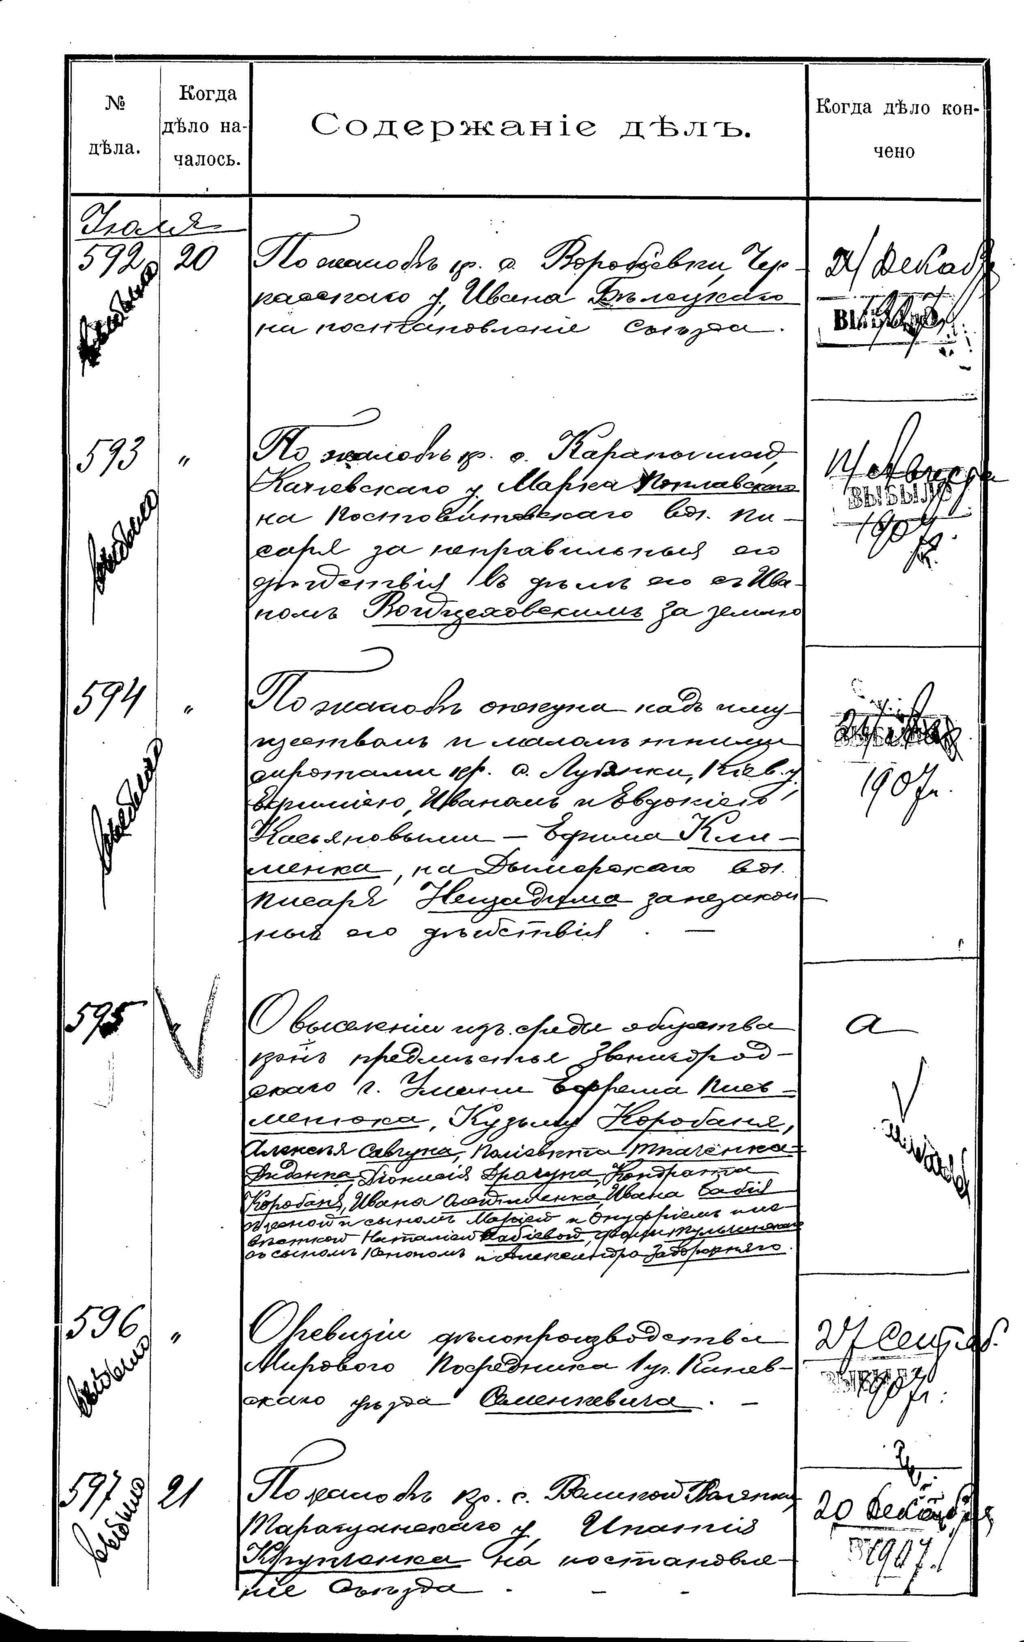 № дѣла.
Когда дѣло на-
чалось.
Содержаніе дѣлъ.
Когда дѣло кон-
чено
Іюля
592 20 По жалобѣ кр. с. Воробіевки, Чер-
касскаго у. Ивана Бѣлецкаго
на постановленіе Съѣзда.
24 Декабр
1907
выбыло
593 " По жалобѣ кр. с. Карапышей,
Каневскаго у. Марка Поплавскаго
на вол. пи-
саря за неправильныя его
дѣйствія въ дѣлѣ его съ Ива-
номъ Войцеховскимъ за землю
Августа
ВЫБЫЛО
1907 г.
выбыло
594 " По жалобѣ опекуна надъ иму-
ществомъ и малолѣтними
сиротами кр. с. Лубянки, Кіев. у.
Иваномъ и Евдокіею
Касьяновыми — Ефима Кли-
менка, на Дымерскаго вол.
писаря Нещадима за незакон-
ныя его дѣйствія. —
1907 г.
выбыло
595 " О выселеніи изъ среды общества
предмѣстья Звенигород-
скаго г. Умани Ефрема Пись-
менюка, Кузьмы Коробаня,
Алексѣя Савчука, Ткаченка-
Диденка, Діонисія Драгупа, Кондрата
Коробаня, Ивана Ивана Бабія
съ женой и сыномъ и Онуфріемъ и не-
вѣсткой Наталіею Бабіевой,
съ сыномъ и Александра Задорожняго.
а
596 " О ревизіи дѣлопроизводства
Мирового Посредника 1 уч. Канев-
скаго уѣзда Семенкевича. —
27 Сентяб.
1907 г.
выбыло
597 21 По жалобѣ кр. с. Великой
Таращанскаго у. Ипатія
Крупченка на постановле-
ніе Съѣзда. — —
20 Декабря
1907 г.
выбыло